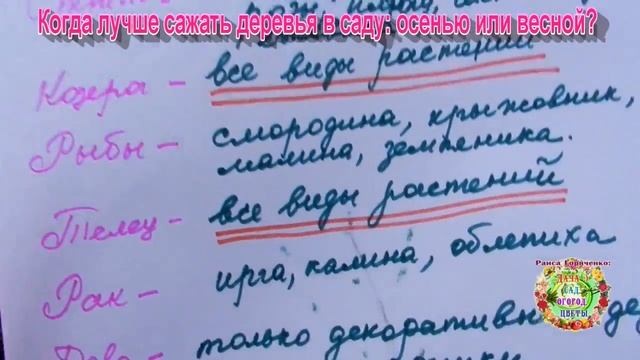 Когда лучше сажать деревья в саду: осенью или весной?
Козера – все виды растений
Рыбы – смородина, крыжовник,
малина, земляника.
Телец – все виды растений
Рак – ирга, калина, облепиха
только декоративн
Раиса Горяченко:
ДАЧА
САД
ОГОРОД
ЦВЕТЫ